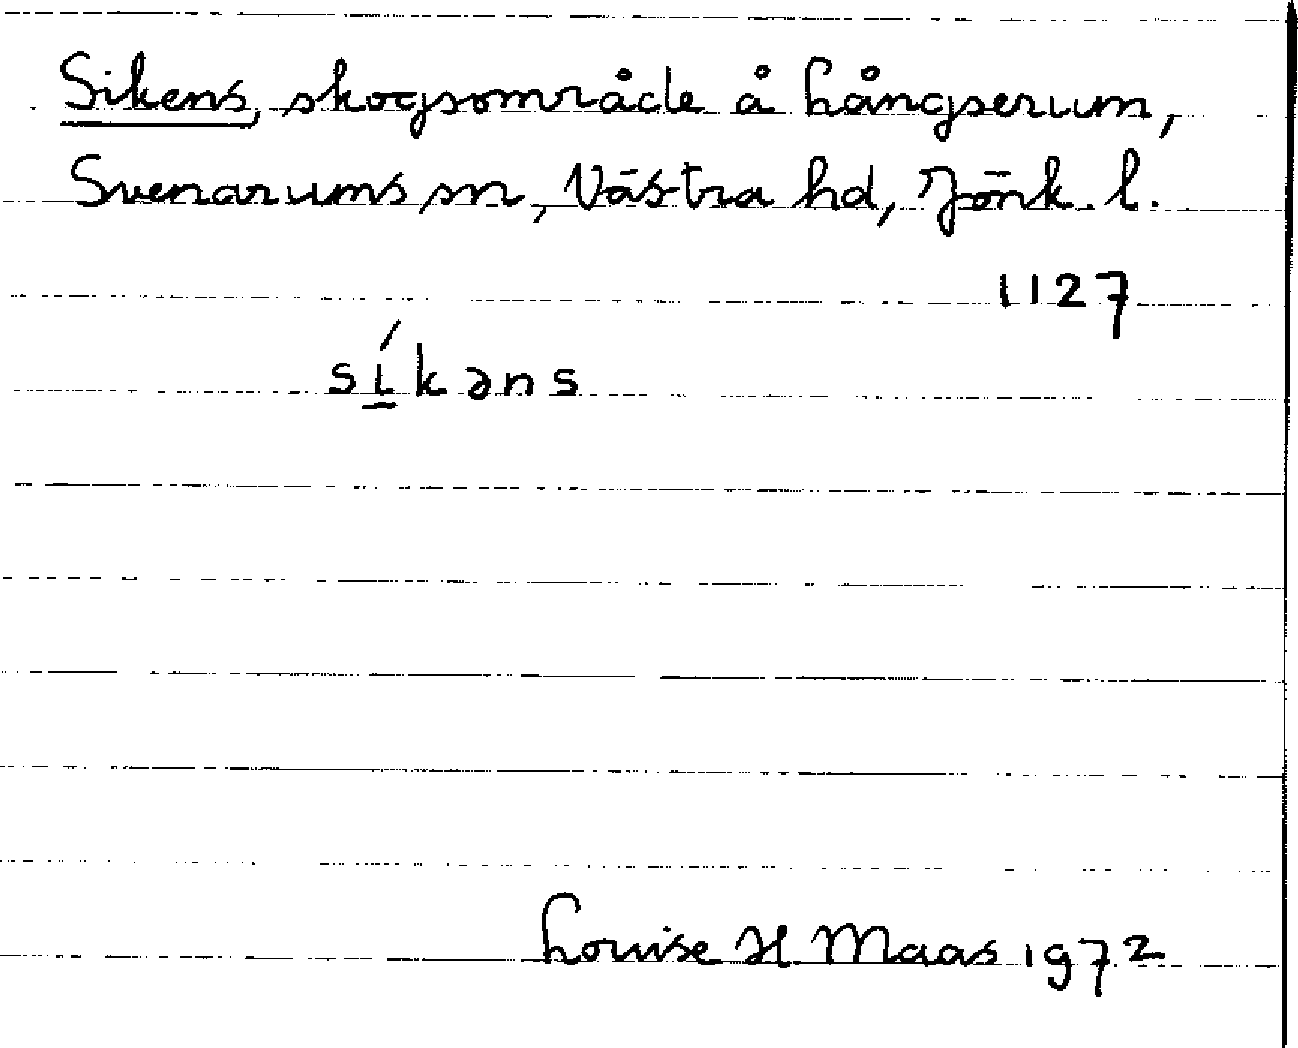 Sikens, skogsområde å Långserum,
Svenarums sn, Västra hd, Jönk. l.
1127
síkəns
Louise H Maas 1972